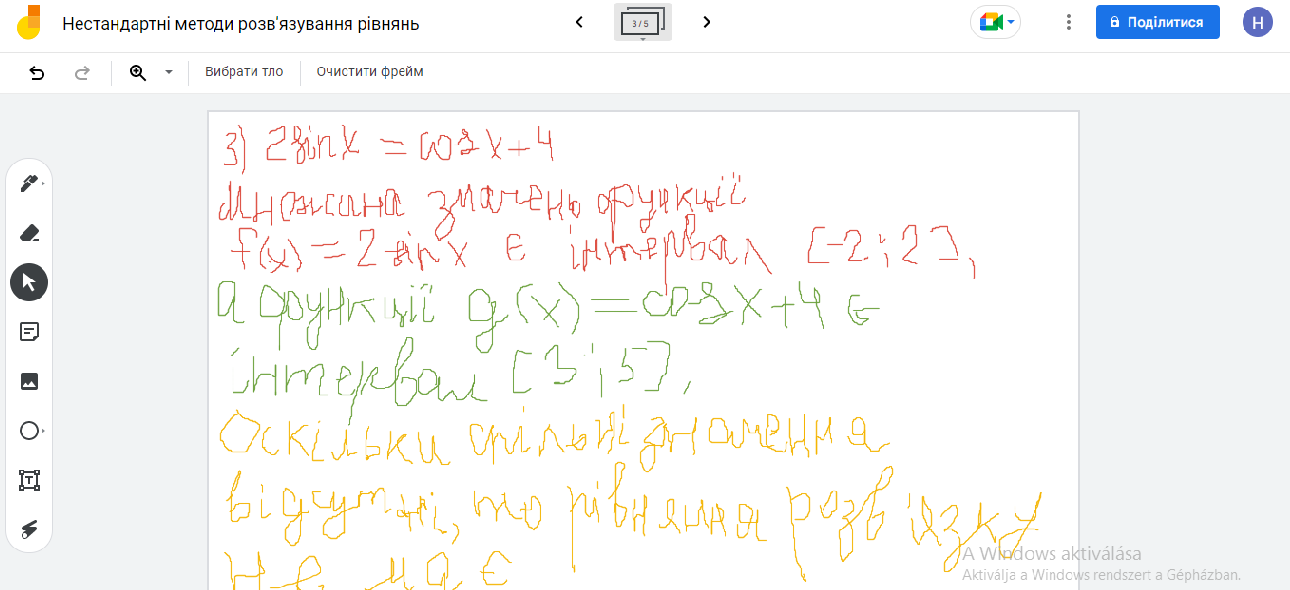 Нестандартні методи розв'язування рівнянь
3 / 5
Поділитися
Н
Вибрати тло
Очистити фрейм
3) 2sinx = cosx+4
Множина значень функції
f(x) = 2sinx є інтервал [-2; 2],
а функції g(x) = cosx+4 є
інтервал [3; 5],
Оскільки спільні значення
відсутні, то рівняння розв'язку
не має
A Windows aktiválása
Aktiválja a Windows rendszert a Gépházban.